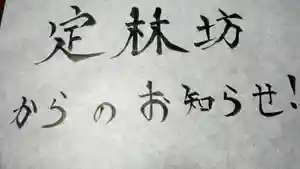 定林坊
からのお知らせ!